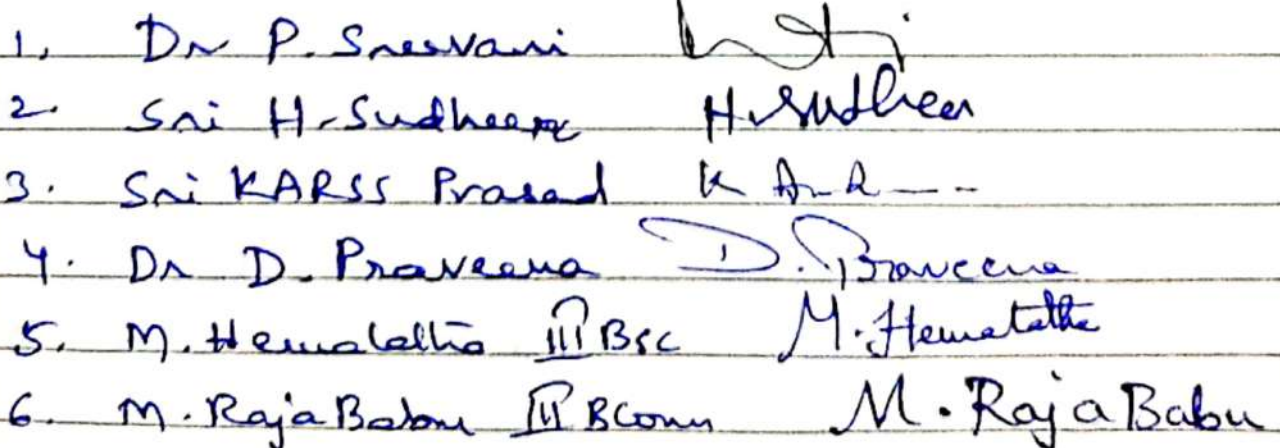 1. Dr P. Sresvani
2. Sri H. Sudheer H. Sudheer
3. Sri KARSS Prasad
4. Dr D. Praveena D. Praveena
5. M. Hemalatha III BSc M. Hemalatha
6. M. Raja Babu III BCom M. Raja Babu